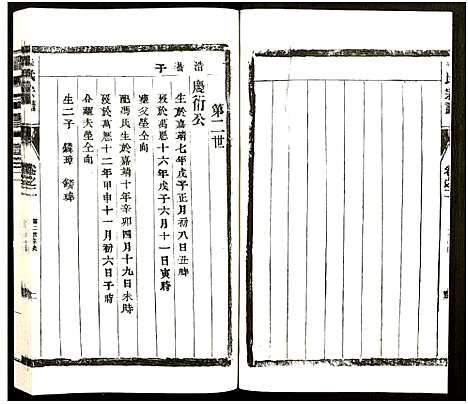 氏宗譜
卷之一
第二世
浩公子
慶衍公
生於嘉靖七年戊子正月初八日丑時
歿於萬歷十六年戊子六月十一日寅時
葬父塋仝向
配馮氏生於嘉靖十年辛卯四月十九日未時
歿於萬歷十二年甲申十一月初六日子時
合葬夫塋仝向
生二子
氏宗譜
卷之一
第二世年表